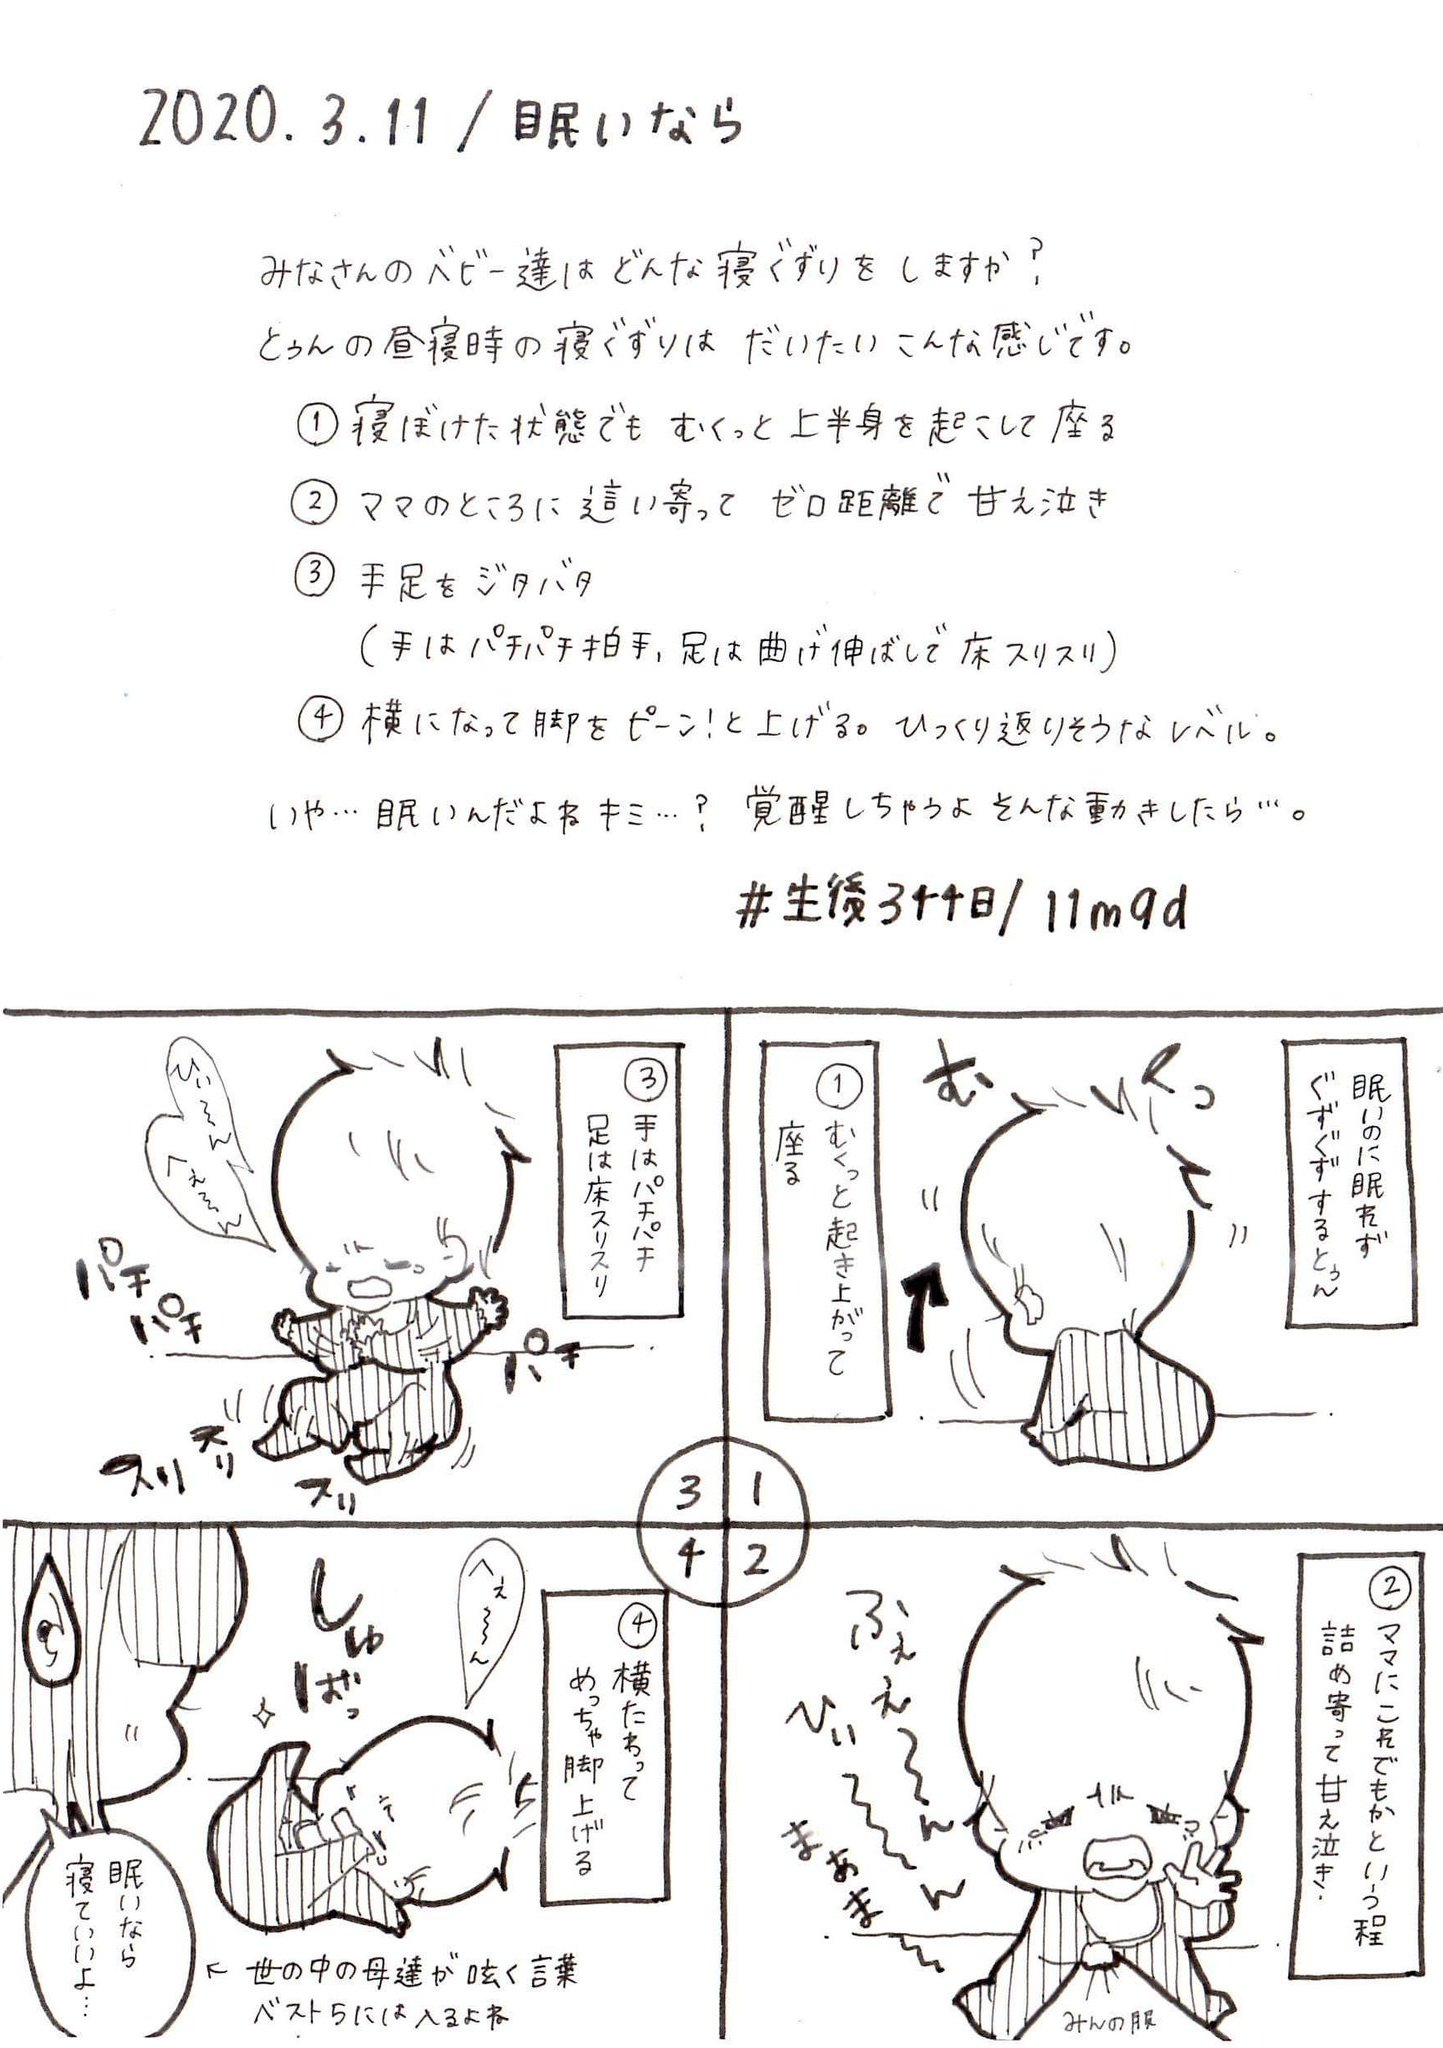 2020.3.11/眠いなら
みなさんのベビー達はどんな寝ぐずりをしますか?
とぅんの昼寝時の寝ぐずりは だいたいこんな感じです。
① 寝ぼけた状態でも むくっと上半身を起こして座る
② ママのところに這い寄って ゼロ距離で甘え泣き
③ 手足をジタバタ
(手はパチパチ拍手,足は曲げ伸ばしで床スリスリ)
④ 横になって脚をピーン!と上げる。ひっくり返りそうなレベル。
いや…眠いんだよねキミ…?覚醒しちゃうよそんな動きしたら…。
#生後344日/11m9d
眠いのに眠れず
ぐずぐずするとぅん
むくっ
① むくっと起き上がって
座る
1
② ママにこれでもかという程
詰め寄って甘え泣き.
ふぇえ〜〜ん
ひぃ〜〜ん
まぁま
みんの服
2
③ 手はパチパチ
足は床スリスリ
ひぃ〜ん
へぇ〜ん
パチ
パチ
パチ
スリ
スリ
スリ
3
④ 横たわって
めっちゃ脚上げる
へぇ〜〜ん
しゅ
ばっ
眠いなら
寝ていいよ…
← 世の中の母達が呟く言葉
ベスト5には入るよね
4